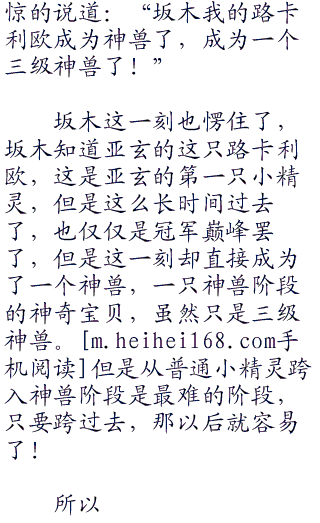 惊的说道：“坂木我的路卡
利欧成为神兽了，成为一个
三级神兽了！”
坂木这一刻也愣住了，
坂木知道亚玄的这只路卡利
欧，这是亚玄的第一只小精
灵，但是这么长时间过去
了，也仅仅是冠军巅峰罢
了，但是这一刻却直接成为
了一个神兽，一只神兽阶段
的神奇宝贝，虽然只是三级
神兽。[m.heihei168.com手
机阅读]但是从普通小精灵跨
入神兽阶段是最难的阶段，
只要跨过去，那以后就容易
了！
所以